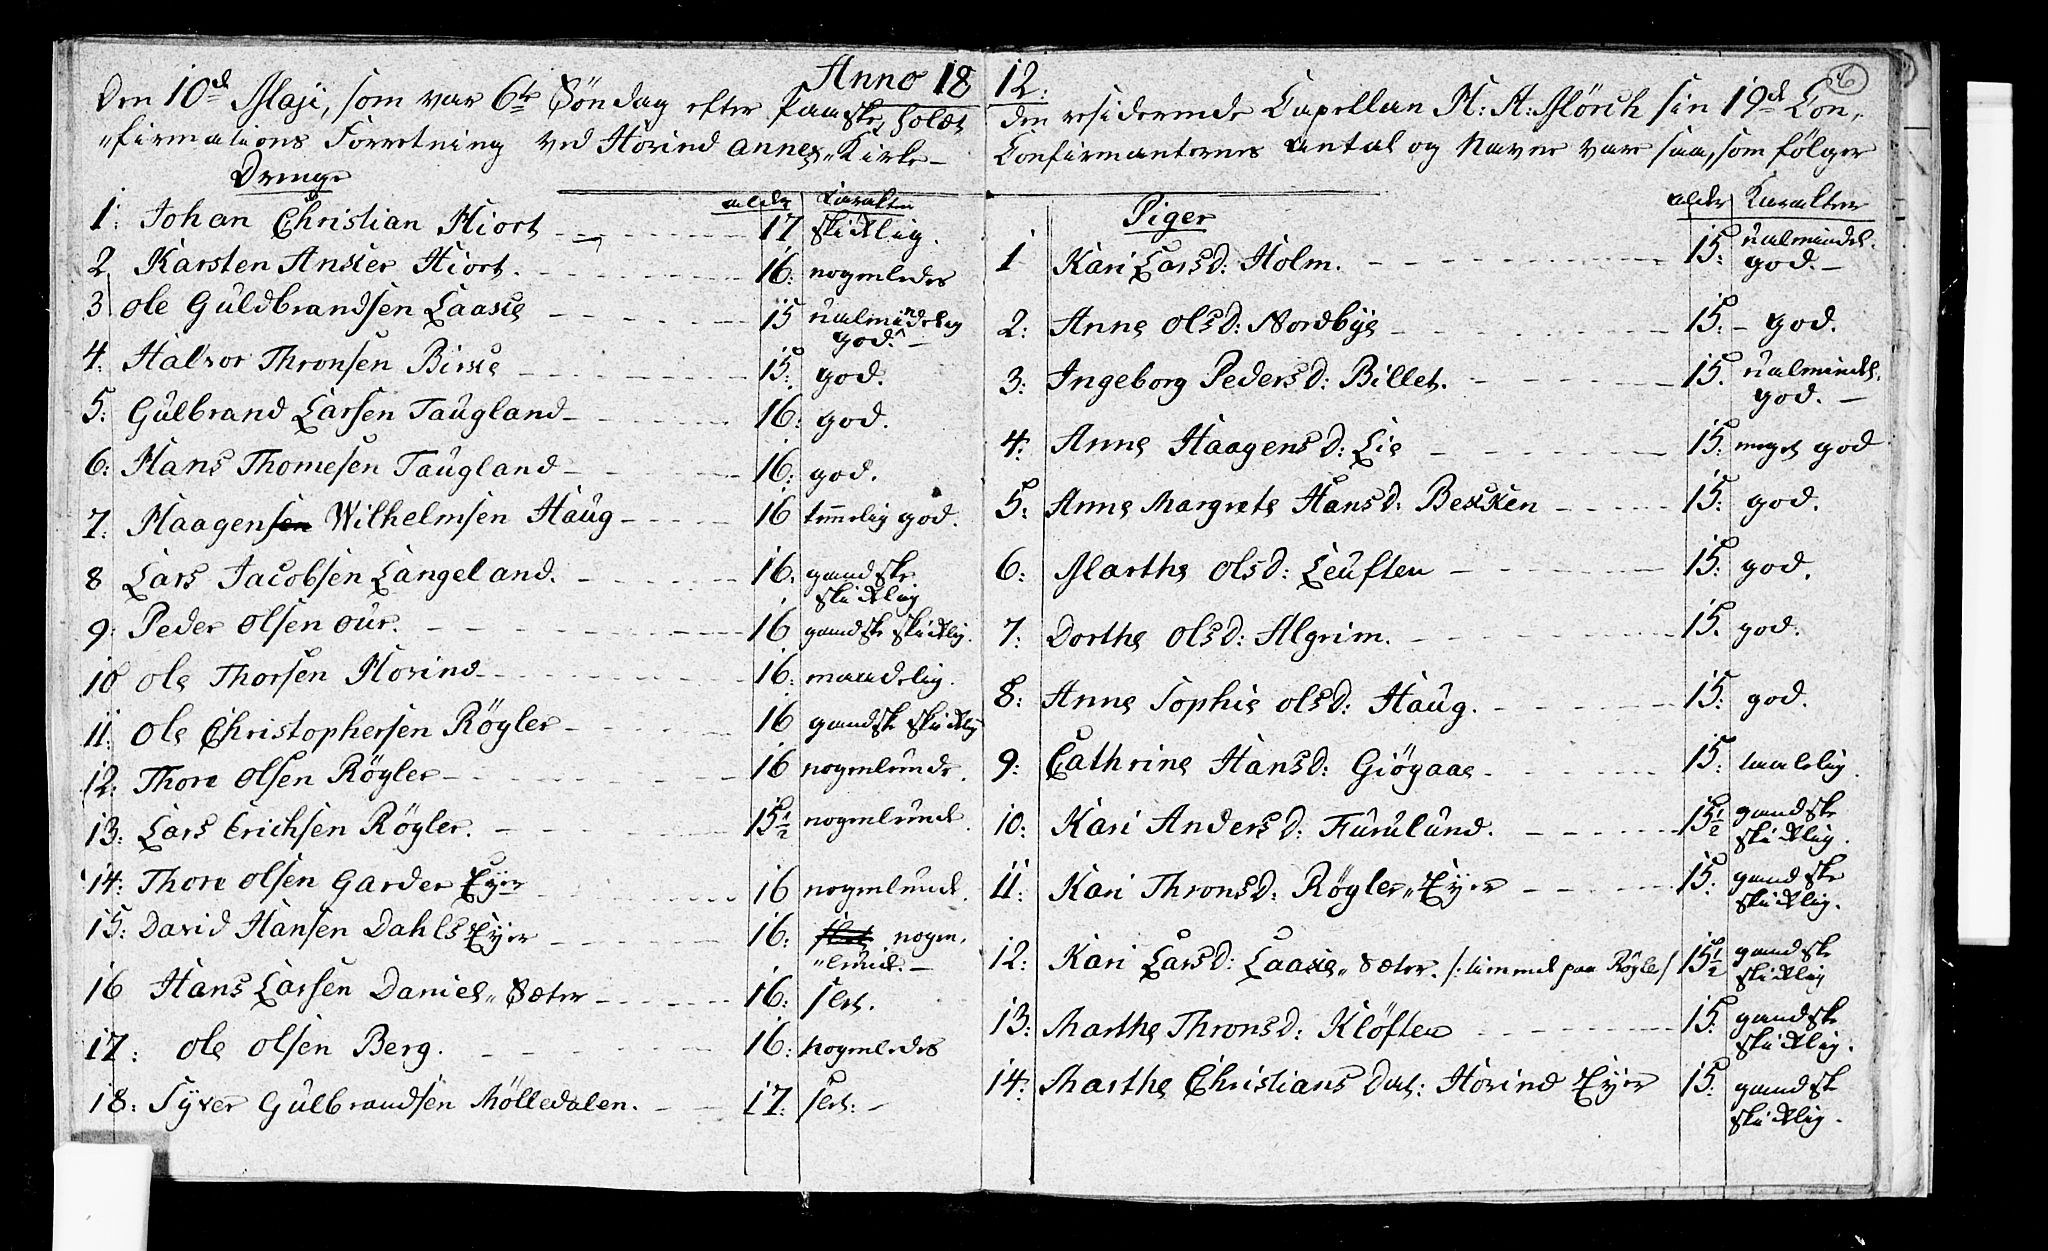 Anno 18 12.
Den 10d Maji, som var 6te Söndag efter Paaske, holdt den residerende Capellan H: H: Mörch sin 19d Con„
„firmations Forretning ved Hörind annex„Kirke – Confirmanternes antal og Navne var saa, som følger
Drenge
alder Karakter
1: Johan Christian Hiort 17 skiklig.
2 Karsten Anker Hiort. 16: nogenledes
3 Ole Guldbrandsen Laake 15 ualmindelig
god. –
4. Halvor Thronsen Birke 15: god.
5: Gulbrand Larsen Taugland 16: god.
6: Hans Thomesen Taugland 16: god.
7. Haagensen Wilhelmsen Haug 16 temelig god.
8 Lars Jacobsen Langeland. 16. gandske
skiklig
9: Peder Olsen Our. 16 gandske skiklig.
10 Ole Thorsen Horind 16: maadelig.
11: Ole Christophersen Røgler 16 gandske skiklig
12: Thore Olsen Røgler 16 nogenlunde.
13: Lars Erichsen Røgler. 15 1/2 nogenlunde.
14: Thore Olsen Garder Eyer 16 nogenlunde.
15: David Hansen Dahls Eyer 16: slet nogen„
„lunde. –
16 Hans Larsen Daniel„Sæter 16: slet.
17: Ole Olsen Berg. 16: nogenledes
18: Syver Gulbrandsen Mölledalen. 17: slet. –
6
Piger
alder Karakter
1 Kari Larsd: Holm. 15: ualmindel.
god. –
2: Anne Olsd: Nordbye 15: – god.
3: Ingeborg Pedersd: Billet. 15. ualmindel.
god. –
4: Anne Haagensd: Lie 15: meget god
5: Anne Margrete Hansd: Bekken 15: god.
6: Marthe Olsd: Leuften 15: god.
7: Dorthe Olsd: Algrim. 15. god.
8: Anne Sophie Olsd: Haug. 15: god.
9: Cathrine Hansd: Giögaae 15: taalelig.
10: Kari Andersd: Furulund. 15 1/2 gandske
skiklig.
11: Kari Thronsd: Røgler„Eyer 15: gandske
skiklig.
12: Kari Larsd: Laake„Sæter. /: paa Røgler/ 15 1/2 gandske
skiklig
13: Marthe Thronsd: Klöften 15: gandske
skiklig.
14: Marthe Christians Dat: Hörind Eyer 15: gandske
skiklig.